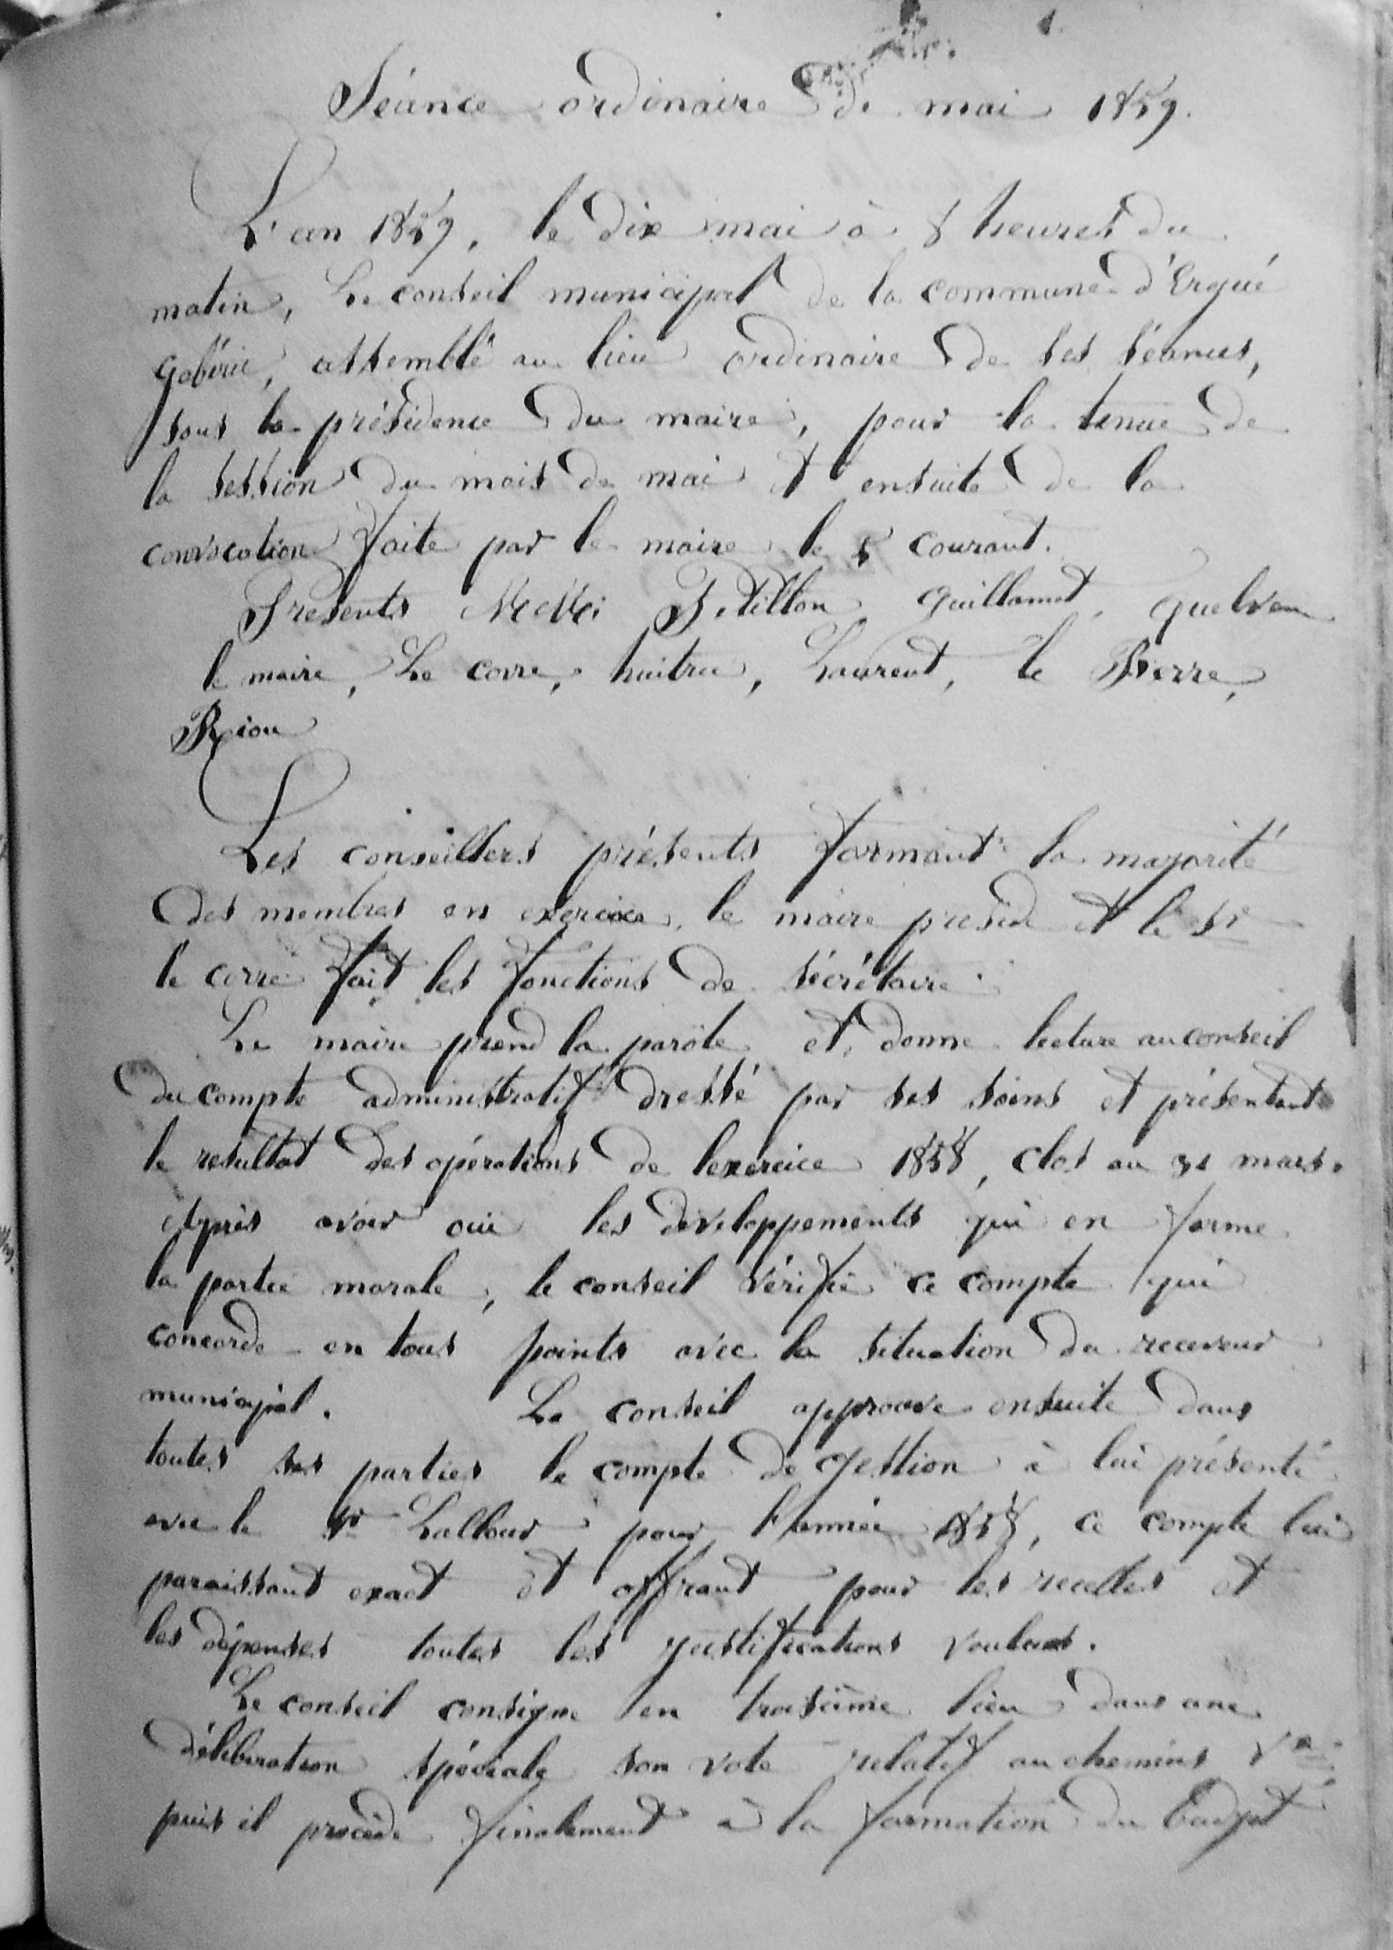 Séance ordinaire de mai 1859.
L'an 1859, le dix mai à 8 heures du
matin, Le conseil municipal de la commune d'Ergué
gabéric, assemblé au lieu ordinaire de ses séances,
sous la présidence du maire, pour la tenue de
la session du mois de mai et ensuite de la
convocation faite par le maire le 5 courant.
Presents MM. Pétillon Guillamet, quelven
le maire, Le corre, huitric, Laurent, le Pierre,
Riou
Les conseillers présents formant la majorité
des membres en exercice, le maire preside et le Sr
le corre fait les fonctions de sécrétaire.
Le maire prend la parole et donne lecture au conseil
du compte administratif dressé par ses soins et présentant
le resultat des opérations de lexercice 1858, clos au 31 mars.
Après avoir oui les developpements qui en forme
la partie morale, le conseil vérifie ce compte qui
concorde en tous points avec la situation du receveur
municipal. Le conseil approuve ensuite dans
toutes ses parties le compte de gestion à lui présenté
le Sr Lallour pour l'année 1858, ce compte lui
paraissant exact et offrant pour les recettes et
les dépenses toutes les justifications voulues.
Le conseil consigne en troisième lieu dans une
déliberation spéciale son vote relatif au chemins Vx
puis il procède finalement à la formation du budget